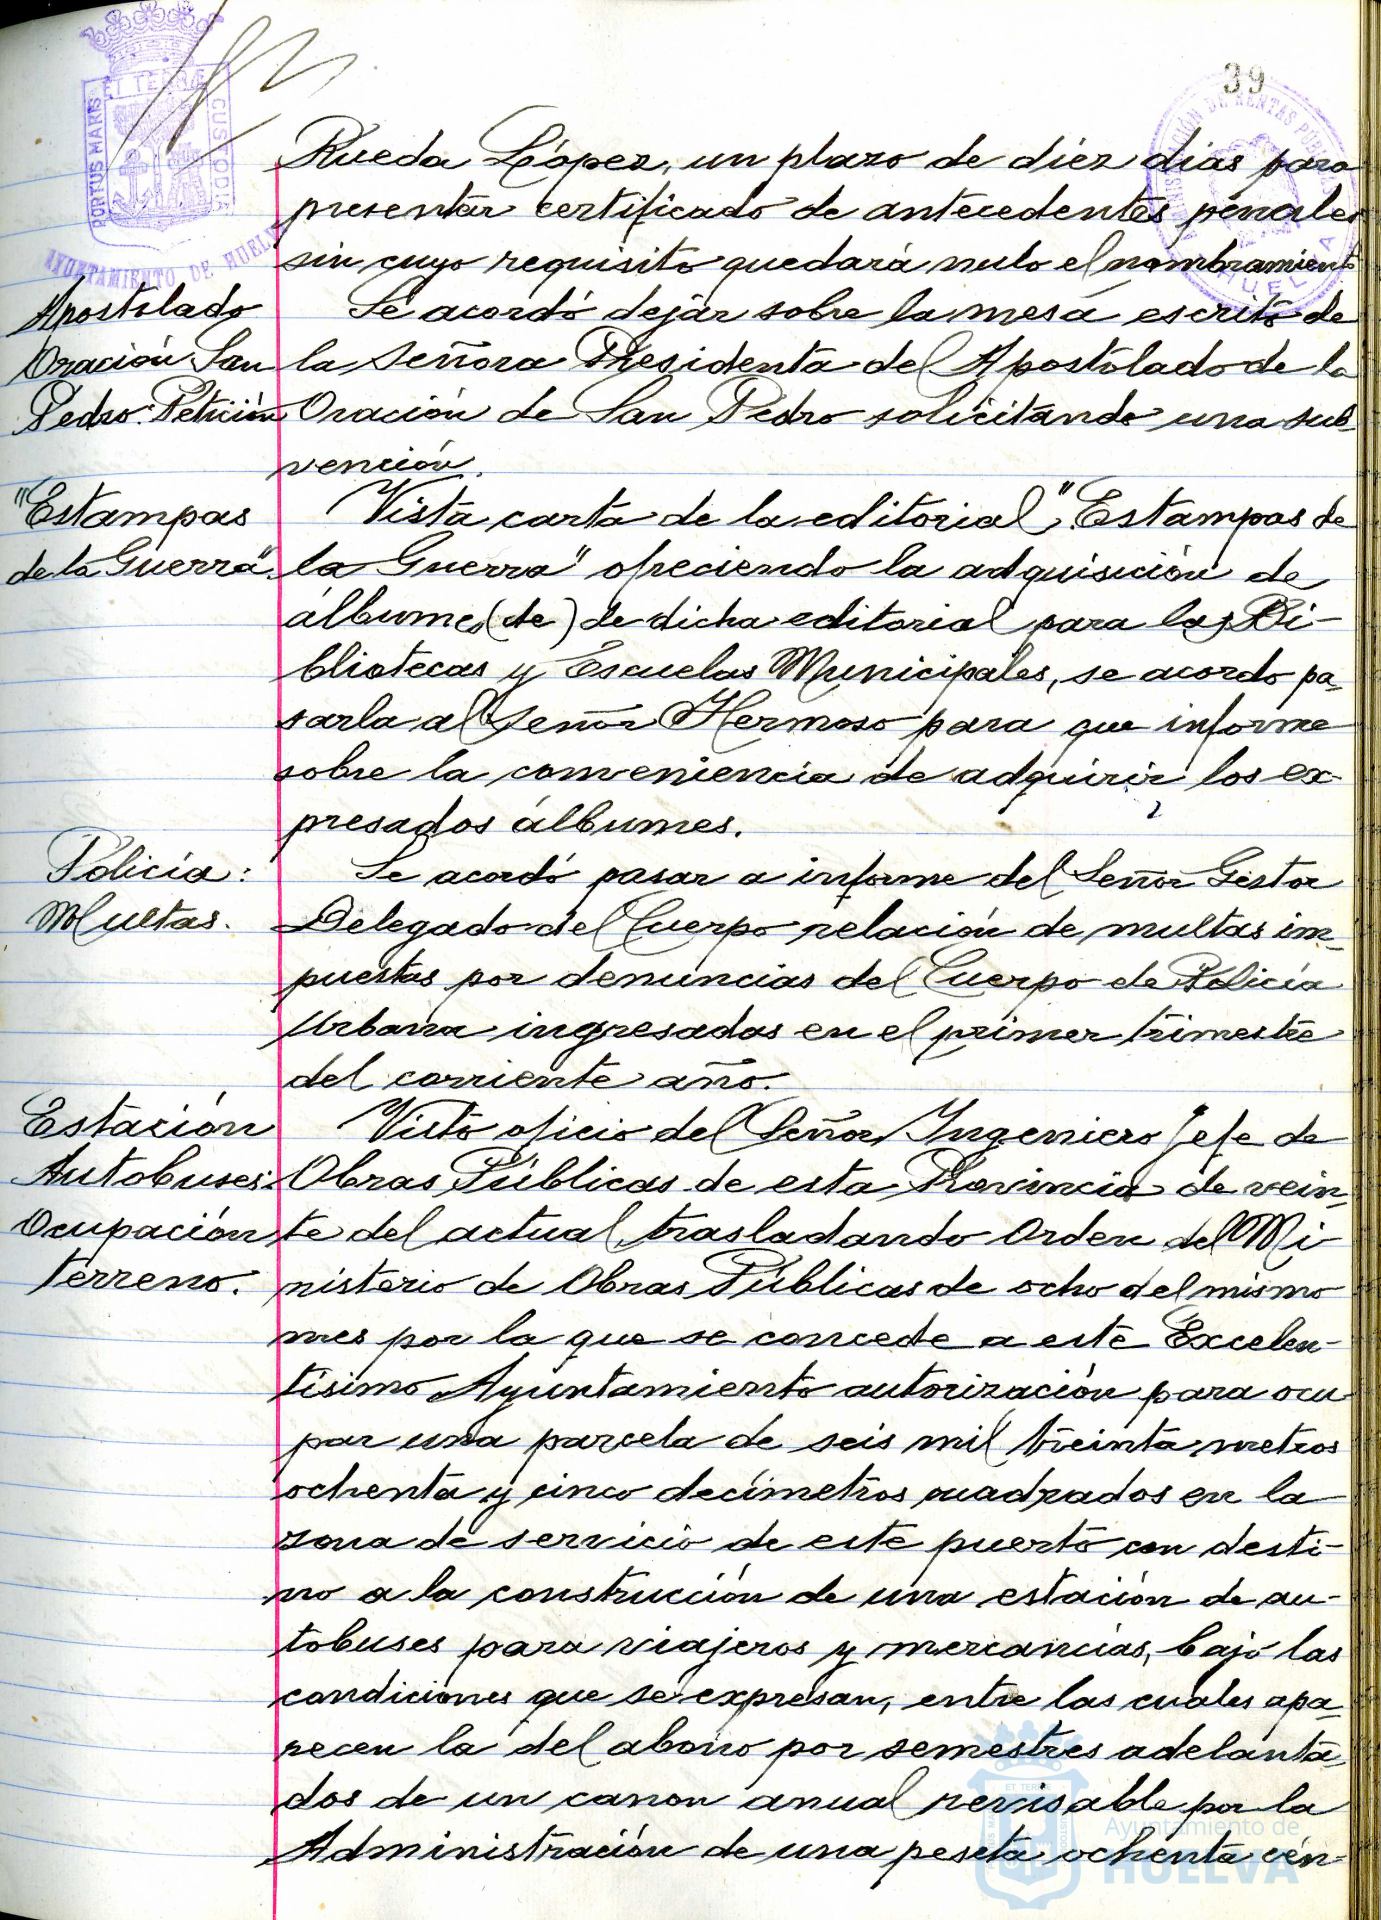 39
PORTUS MARIS ET TERRÆ CUSTODIA
AYUNTAMIENTO DE HUELVA
Rueda López, un plazo de diez dias para
presentar certificado de antecedentes penales
sin cuyo requisito quedará nulo el nombramiento
Apostolado
Oración San
Pedro: Petición
Se acordó dejar sobre la mesa escrito de
la Señora Presidenta del Apostolado de la
Oración de San Pedro solicitando una sub-
vención.
"Estampas
de la Guerra".
Vista carta de la editorial "Estampas de
la Guerra" ofreciendo la adquisición de
álbumes (de) de dicha editorial para las Bi-
bliotecas y Escuelas Municipales, se acordo pa-
sarla al Señor Hermoso para que informe
sobre la conveniencia de adquirir los ex-
presados álbumes.
Policía:
Multas.
Se acordó pasar a informe del Señor Gestor
Delegado del Cuerpo relación de multas im-
puestas por denuncias del Cuerpo de Policía
Urbana ingresadas en el primer trimestre
del corriente año.
Estación
Autobuses:
Ocupación
terreno.
Visto oficio del Señor Ingeniero Jefe de
Obras Públicas de esta Provincia de vein-
te del actual, trasladando Orden del Mi-
nisterio de Obras Públicas de ocho del mismo
mes por la que se concede a este Excelen-
tísimo Ayuntamiento autorización para ocu-
par una parcela de seis mil treinta metros
ochenta y cinco decímetros cuadrados en la
zona de servicio de este puerto con desti-
no a la construcción de una estación de au-
tobuses para viajeros y mercancías, bajo las
condiciones que se expresan, entre las cuales apa-
recen la del abono por semestres adelanta-
dos de un canon anual revisable por la
Administración de una peseta ochenta cén-
Ayuntamiento de
HUELVA